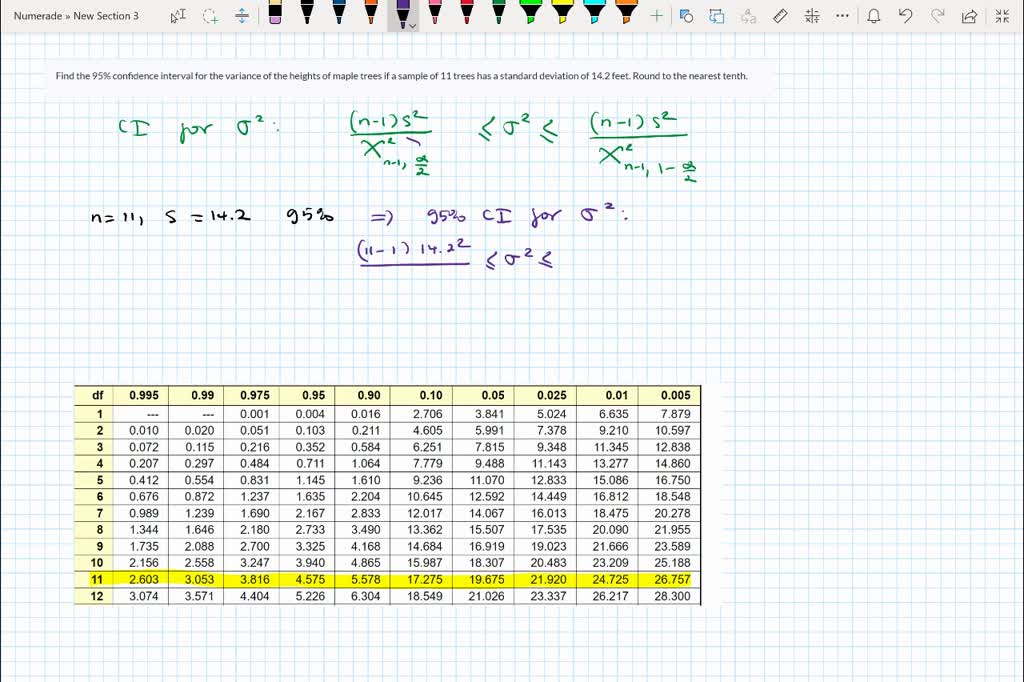 Numerade » New Section 3
Find the 95% confidence interval for the variance of the heights of maple trees if a sample of 11 trees has a standard deviation of 14.2 feet. Round to the nearest tenth.
CI for σ²: (n-1)s² / χ²n-1, α/2 ≤ σ² ≤ (n-1)s² / χ²n-1, 1-α/2
n=11, s=14.2 95% ⇒ 95% CI for σ²:
(11-1)14.2² ≤ σ² ≤
df 0.995 0.99 0.975 0.95 0.90 0.10 0.05 0.025 0.01 0.005
1 --- --- 0.001 0.004 0.016 2.706 3.841 5.024 6.635 7.879
2 0.010 0.020 0.051 0.103 0.211 4.605 5.991 7.378 9.210 10.597
3 0.072 0.115 0.216 0.352 0.584 6.251 7.815 9.348 11.345 12.838
4 0.207 0.297 0.484 0.711 1.064 7.779 9.488 11.143 13.277 14.860
5 0.412 0.554 0.831 1.145 1.610 9.236 11.070 12.833 15.086 16.750
6 0.676 0.872 1.237 1.635 2.204 10.645 12.592 14.449 16.812 18.548
7 0.989 1.239 1.690 2.167 2.833 12.017 14.067 16.013 18.475 20.278
8 1.344 1.646 2.180 2.733 3.490 13.362 15.507 17.535 20.090 21.955
9 1.735 2.088 2.700 3.325 4.168 14.684 16.919 19.023 21.666 23.589
10 2.156 2.558 3.247 3.940 4.865 15.987 18.307 20.483 23.209 25.188
11 2.603 3.053 3.816 4.575 5.578 17.275 19.675 21.920 24.725 26.757
12 3.074 3.571 4.404 5.226 6.304 18.549 21.026 23.337 26.217 28.300